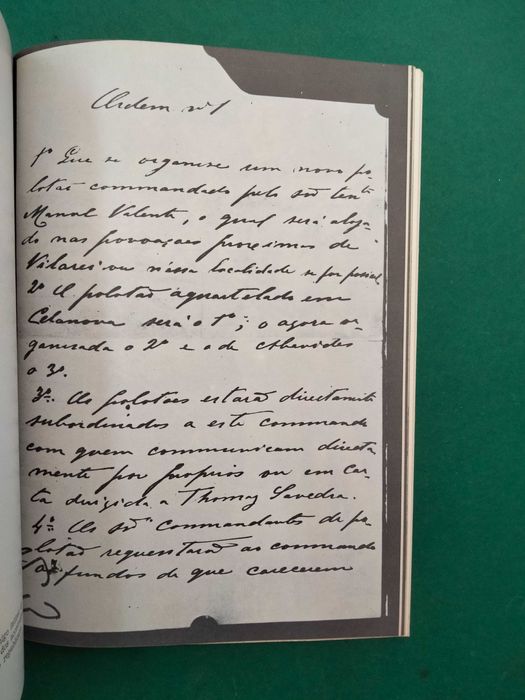 Ordem nº 1
1º Que se organise um novo pe-
lotão commandado pelo snr. tente
Manoel Valente, o qual será aloja-
do nas povoações proximas de
Vilares ou nessa localidade se for possivel
2º O pelotão aquartelado em
Celanova será o 1º; o agora or-
ganisado o 2º e o de Abavides
o 3º.
3º. Os pelotões estarão directamente
subordinados a este commando
com quem communicam directa
mente por proprios ou em car-
ta dirigida a Thomaz Savedra.
4º Os snrs commandantes de pe-
lotão requesitarão ao commando
os fundos de que carecerem